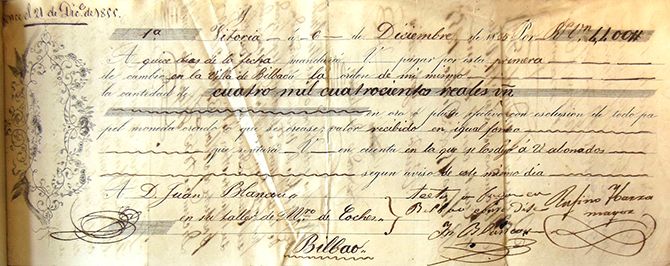 el 21 de Dic.e de 1855.
1a Vitoria á 6 de Diciembre de 1855 Por Rs. Vn.
A quice dias de la fecha mandará V. pagar por esta primera
de cambio en la Villa de Bilbao á la orden de mi mismo
la cantidad de cuatro mil cuatrocientos reales vn
en oro ó plata efectivo con esclusion de todo pa
pel moneda creado ó que se crease, valor recibido en igual forma
que sentará V. en cuenta en la que
segun aviso de este mismo dia
A D. Juan Blanco
en su taller de Mtro. de Coches
Bilbao
Rufino Ibarra
mayor